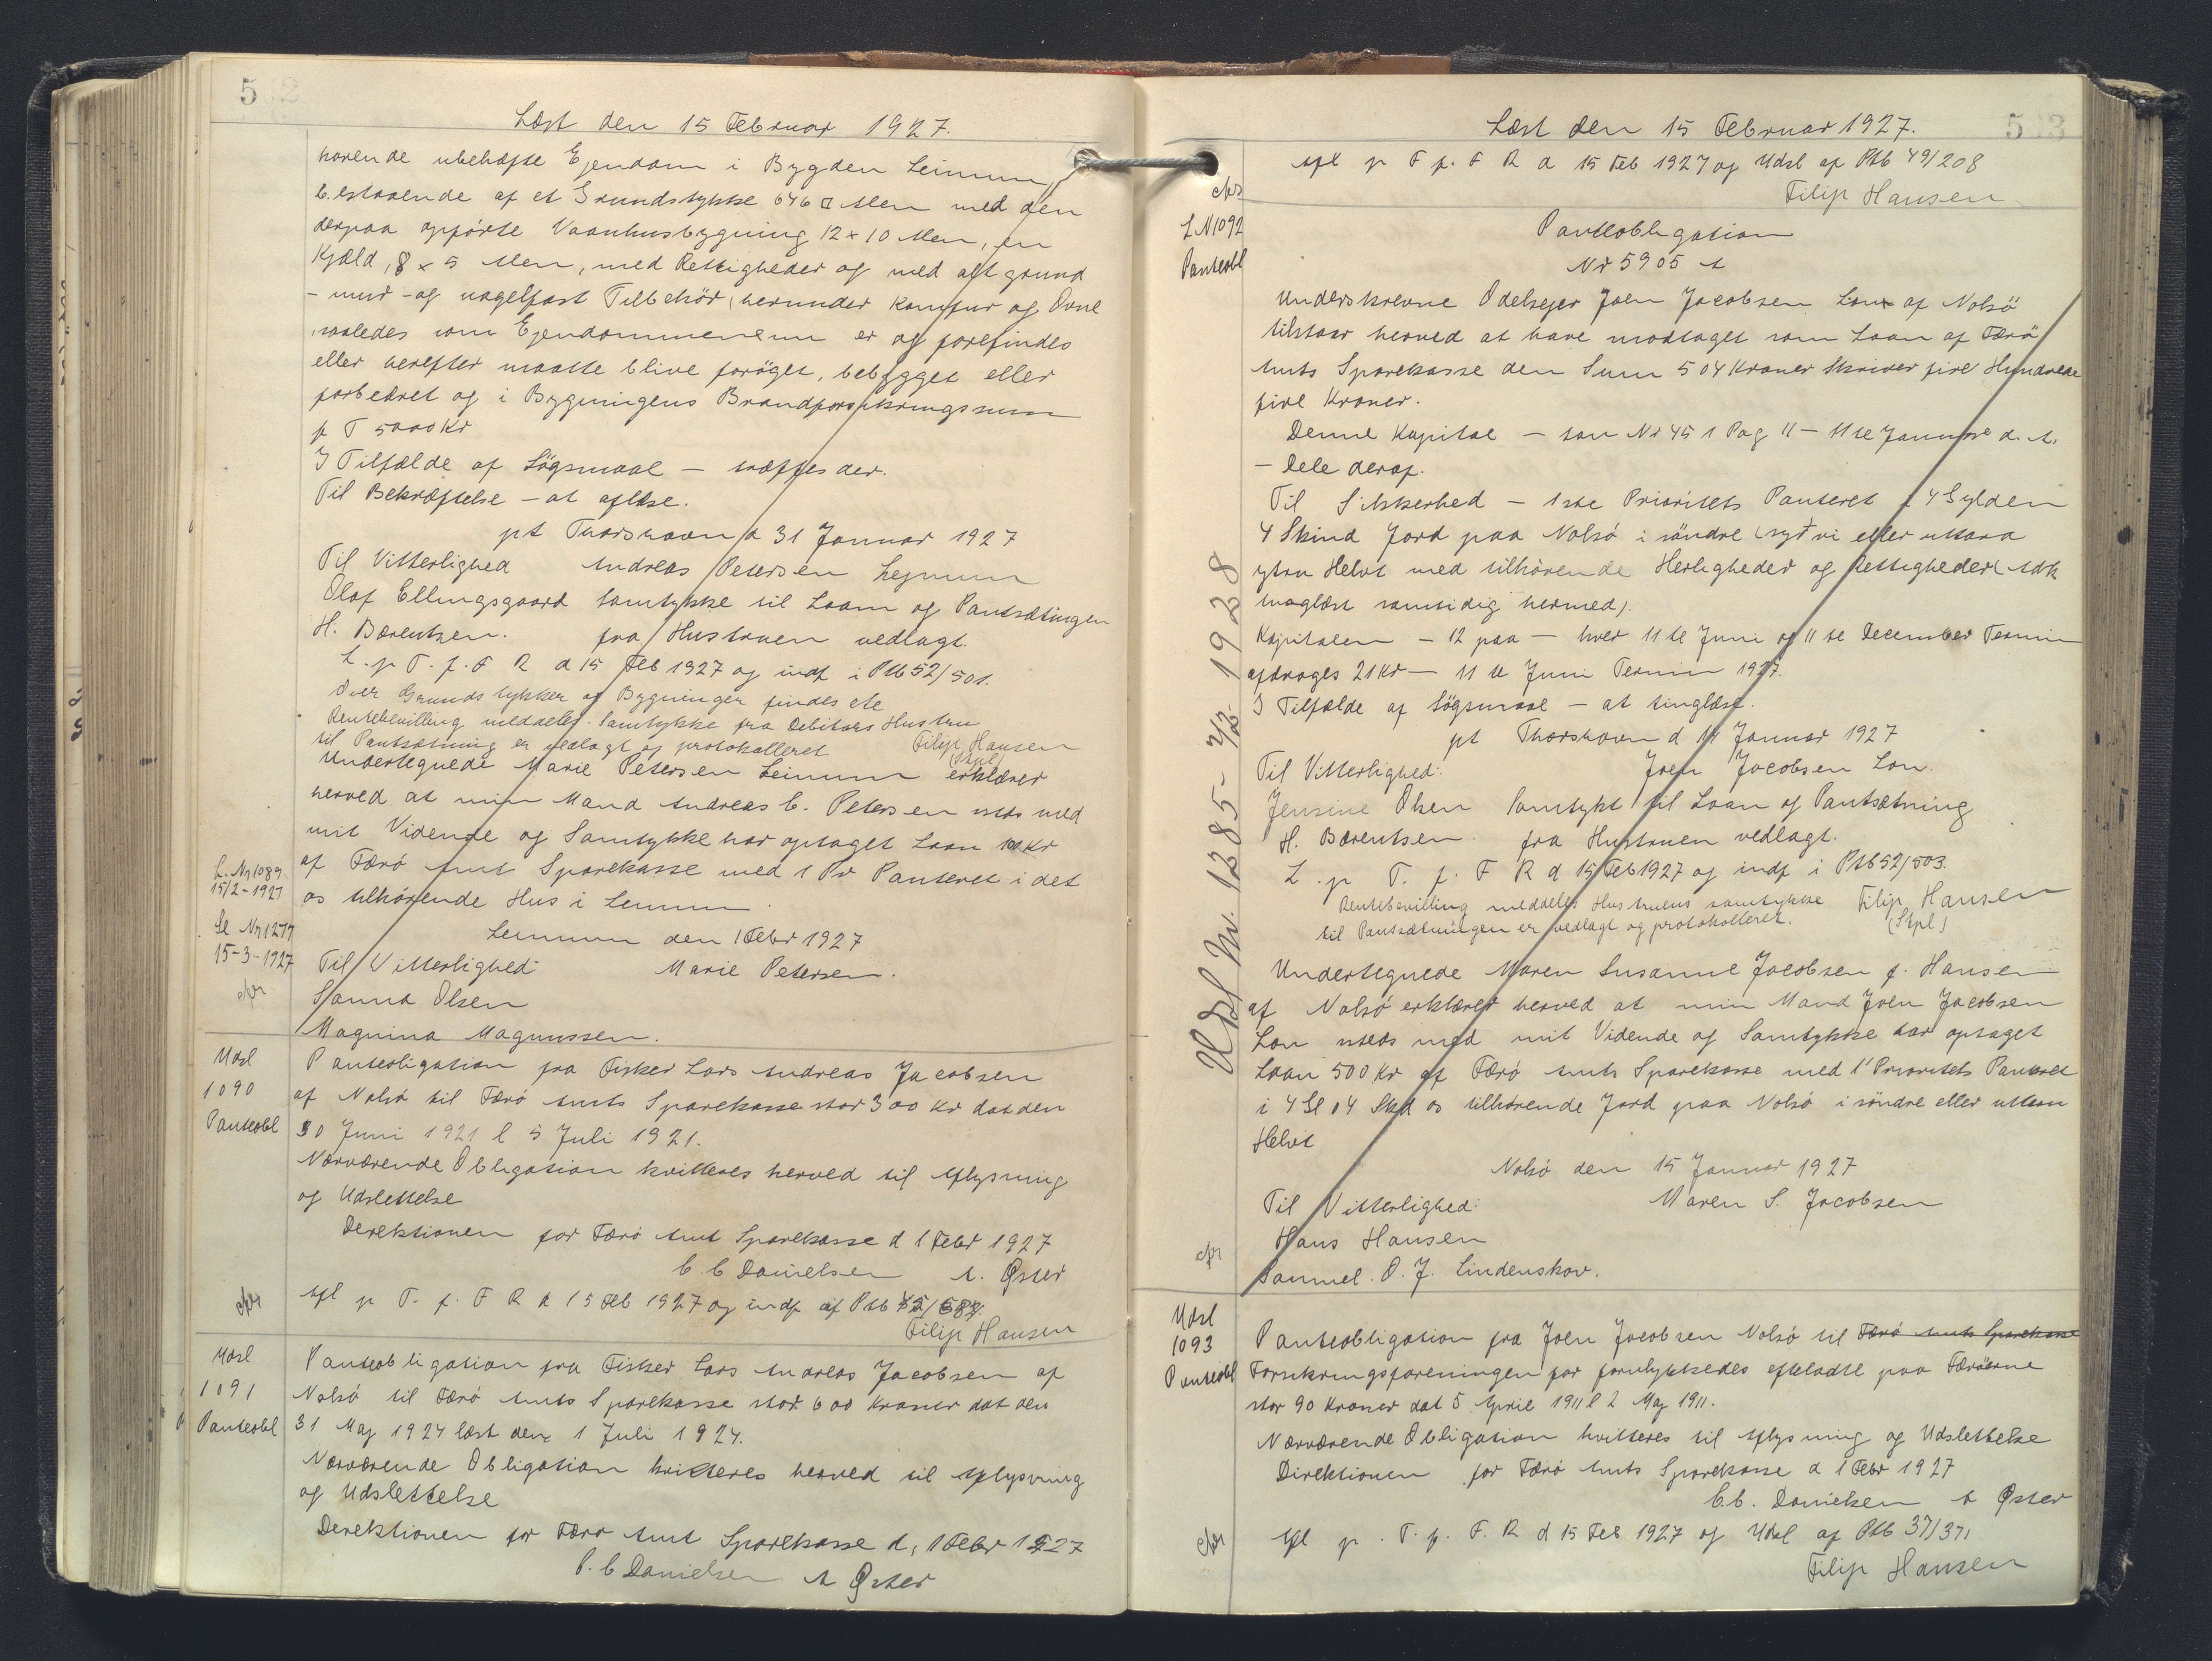 502
Læst den 15 Februar 1927.
hørende ubehæfte Ejendom i Bygden Leinum,
bestaaende af et Grundstykke 646 □ Alen med den
derpaa opførte Vaanhusbygning 12 x 10 Alen, en
Kjæld, 8 x 5 Alen, med Rettigheder og med alt grund
- mur - og nagelfast Tilbehör (herunder Komfur og Ovne
saaledes som Ejendommenenn er og forefindes
eller herefter maatte blive forøget, bebygget eller
forbedret og i Bygningens Brandforsikringssum
p T 5000 Kr
I Tilfælde af Sögsmaal — træffes der.
Til Bekræftelse - at aflæse.
pt Thorshavn d 31 Januar 1927
Til Vitterlighed Andreas Petersen Lejnum
Olaf Ellingsgaard Samtykke til Laan og Pantsætingen
H. Bærentzen. fra Hustruen vedlagt.
L. p T. f. F R d 15 Feb 1927 og indf i Ptb 52/501.
Over Grundstykker og Bygninger findes ete
Rentebevilling meddeles. Samtykke fra Debitors Hustru
til Pantsætning er vedlagt og protokolleret Filip Hansen
(Stpl)
Undertegnede Marie Petersen Leinum erklærer
herved at min Mand Andreas C. Petersen usds med
mit Vidende og Samtykke har optaget Laan 100 Kr
af Færö Amt Sparekasse med 1 Pr Panteret i det
os tilhørende Hus i Leinum
L. Nr 1089
15/2-1927
Sl Nr 1277
15-3-1927
Leinum den 1 Febr 1927
Til Vitterlighed Marie Petersen.
Sanna Olsen
Magnina Magnussen.
Udsl
1090
Panteobl
Panteobligation fra Fisker Lars Andreas Jacobsen
af Nolsö til Færö Amts Sparekasse stor 300 Kr dat den
30 Juni 1921 l 5 Juli 1921.
Nærværende Obligation kvitteres herved til Aflysning
og Udslettelse
Derektionen for Færö Amt Sparekasse d 1 Febr 1927
C C Danielsen A. Øster
Afl p T. f. F R d 15 Feb 1927 og indf af Ptb
Filip Hansen
Udsl
1091
Panteobl
Panteobligation fra Fisker Lars Andreas Jacobsen af
Nolsö til Færö Amts Sparekasse stor 600 Kroner dat den
31 Maj 1924 læst den 1 Juli 1924.
Nærværende Obligation kvitteres herved til Aflysning
og Udslettelse
Derektionen for Færö Amt Sparekasse d. 1 Febr 1927
P. C Danielsen A Øster
503
Læst den 15 Februar 1927.
Afl p T f. F R d 15 Feb 1927 og Udsl af Ptb 49/208
Filip Hansen
L N 1092
Panteobl
Panteobligation
Nr 5905 A
Underskrevne Odelsejer Joen Jacobsen Lon af Nolsö
tilstaar herved at have modtaget som Laan af Færö
Amts Sparekasse den Sum 504 Kroner skriver fire Hundrede
fire Kroner.
Denne Kapital — som Nr 45 1 Pag 11 — 11te Januar d. A.
— Dele deraf.
Til Sikkerhed — 1ste Prioritets Panteret i 4 Gylden
4 Skind Jord paa Nolsö i söndre (syðri eller uttara
ytru Helvt med tilhörende Herligheder og Rettigheder (Adk
tinglæst samtidig hermed).
Kapitalen — 12 paa — hver 11te Juni og 11te December Termin
afdrages 21 Kr — 11te Juni Termin 1927.
I Tilfælde af Sögsmaal — at tinglæse.
pt Thorshavn d 11 Januar 1927
Til Vitterlighed: Joen Jacobsen Lon.
Jensine Olsen Samtykt til Laan og Pantsætning
H. Bærentsen. fra Hustruen vedlagt.
L. p T. f. F R d 15 Feb 1927 og indf i Ptb 52/503.
Rentebevilling meddeles Hustruens samtykke Filip Hansen
til Pantsætningen er vedlagt og protokolleret. (Stpl)
Udsl Nr. 1285 - 7/2 1928
Undertegnede Maren Susanne Jacobsen f. Hansen
af Nolsö erklærer herved at min Mand Joen Jacobsen
Lon usds med mit Vidende og Samtykke har optaget
Laan 500 Kr af Færö Amts Sparekasse med 1' Prioritets Panteret
i 4 Gl 04 Skd os tilhørende Jord paa Nolsö i söndre eller uttara
Helvt
Nolsö den 15 Januar 1927
Til Vitterlighed: Maren S. Jacobsen
Hans Hansen
Sammel. O. J. Lindenskov.
Udsl
1093
Panteobl
Panteobligation fra Joen Jacobsen Nolsö til Færö Amts Sparekasse
Forsikringsforeningen for forulykkedes efteladte paa Færöerne
stor 90 Kroner dat 5 April 1911 l 2 Maj 1911.
Nærværende Obligation kvitteres til Aflysning og Udslettelse
Direktionen for Færö Amts Sparekasse d 1 Febr 1927
C. C. Danielsen A Øster
Afl p. T. f. F. R d 15 Feb 1927 og Udsl af Ptb 37/371
Filip Hansen